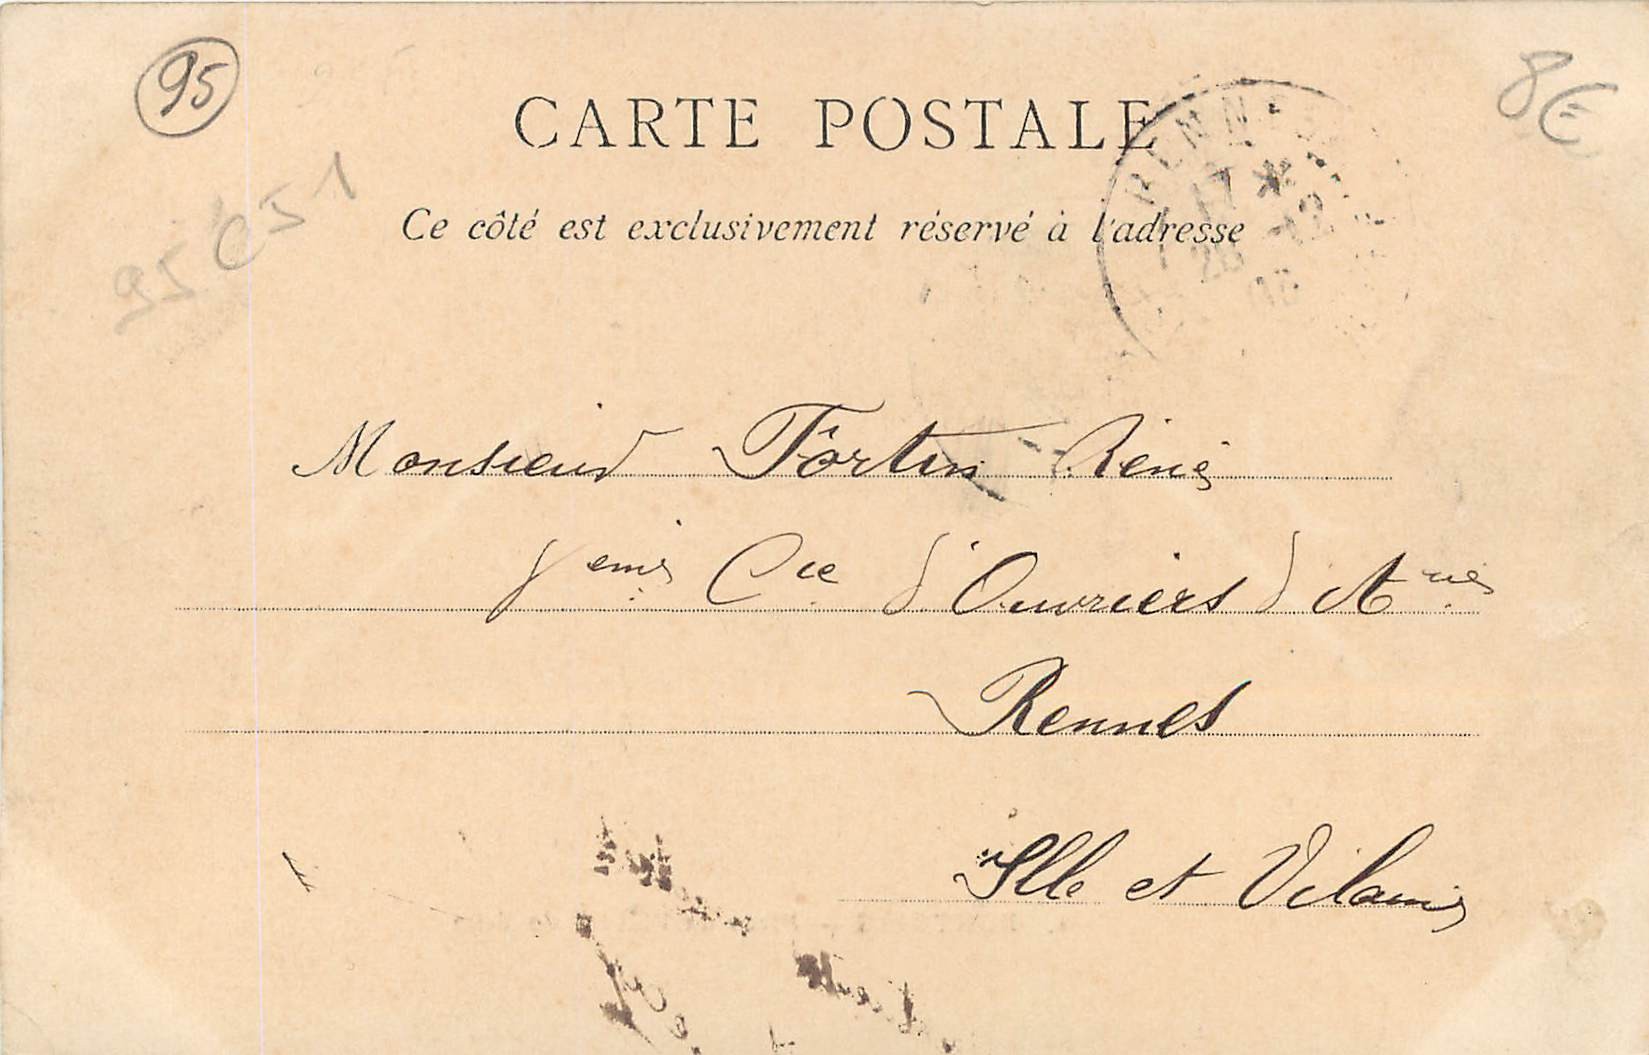 95
8€
CARTE POSTALE
RENNES
17 *
28 -12
05
Ce côté est exclusivement réservé à l'adresse
95C51
Monsieur Fortin Réné
Cie d'Ouvriers d'Ari
Rennes
Ille et Vilaine